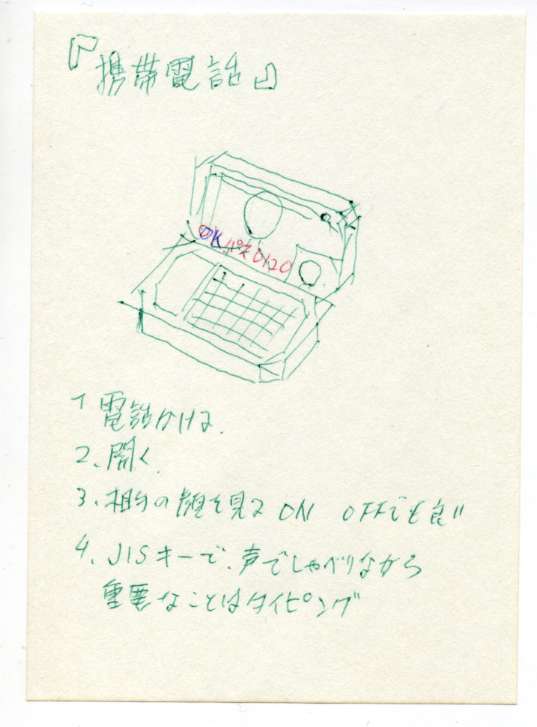 『携帯電話』
OK パス0120
1 電話かける.
2. 開く.
3. 相手の顔を見る ON OFFでも良い
4. JISキーで、声でしゃべりながら
重要なことはタイピング